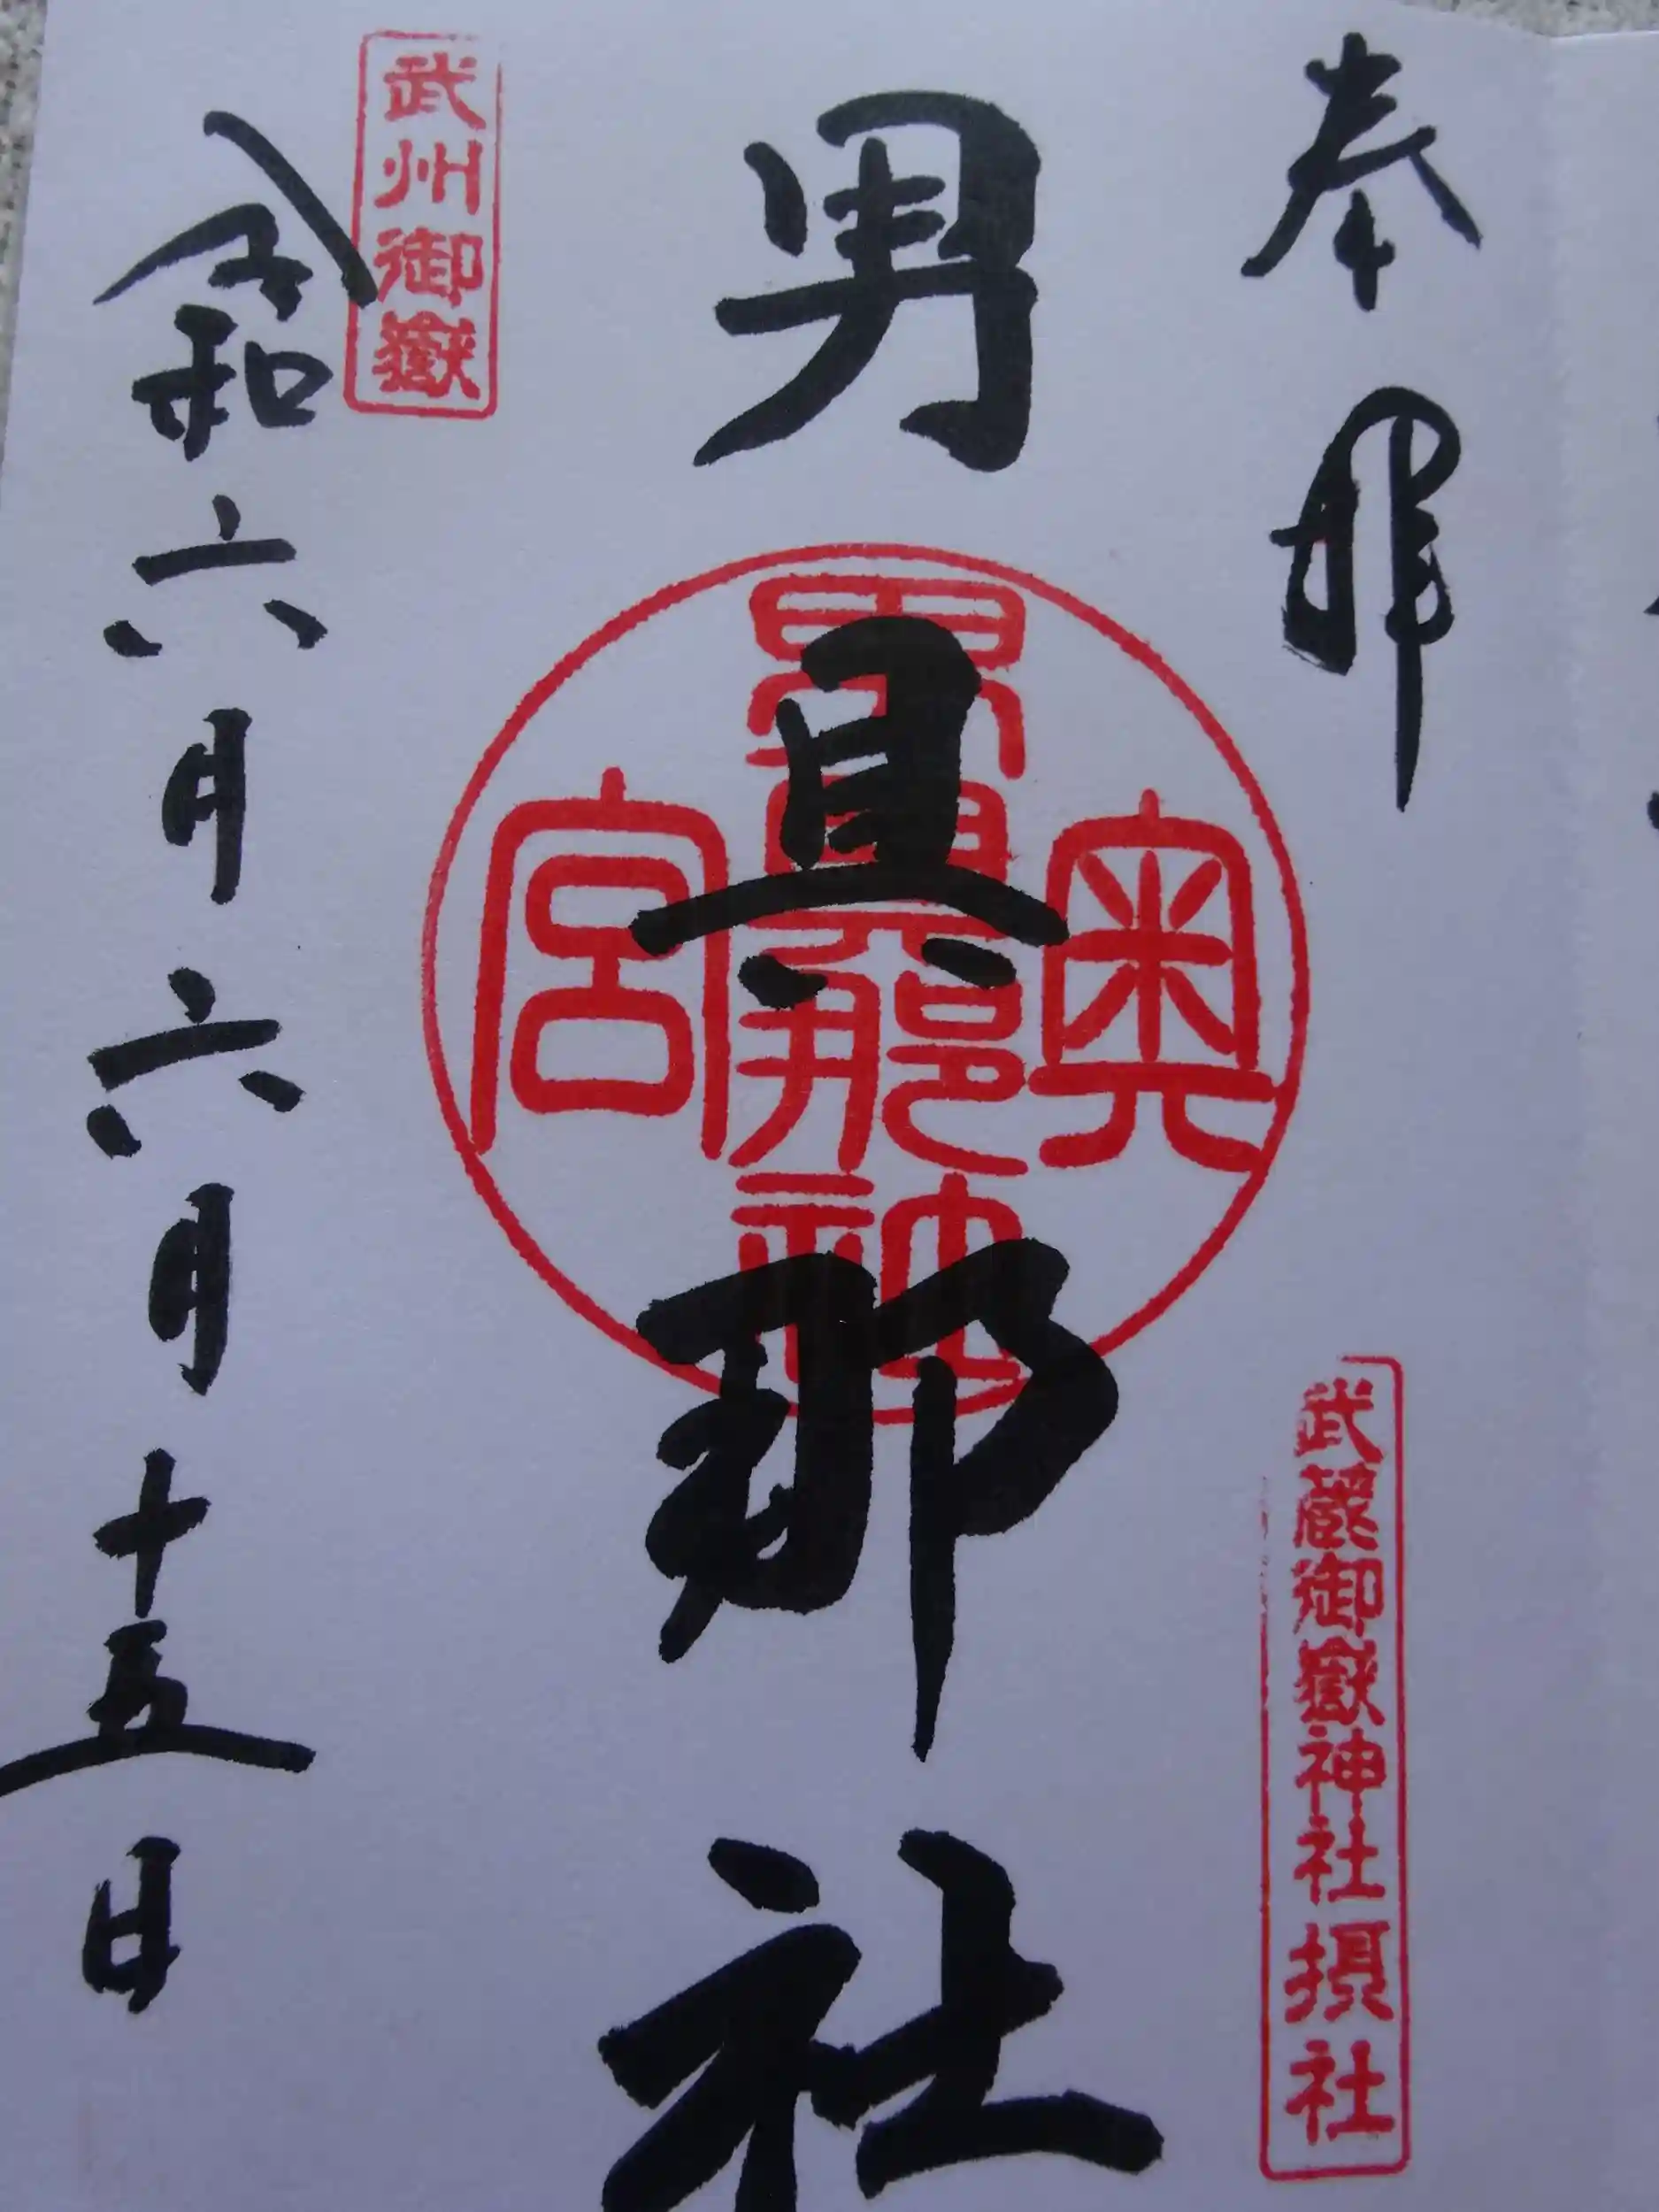 奉拝
武蔵御嶽神社摂社
男具那社
奥
男具那社
宮
武州御嶽
令和六年六月十五日